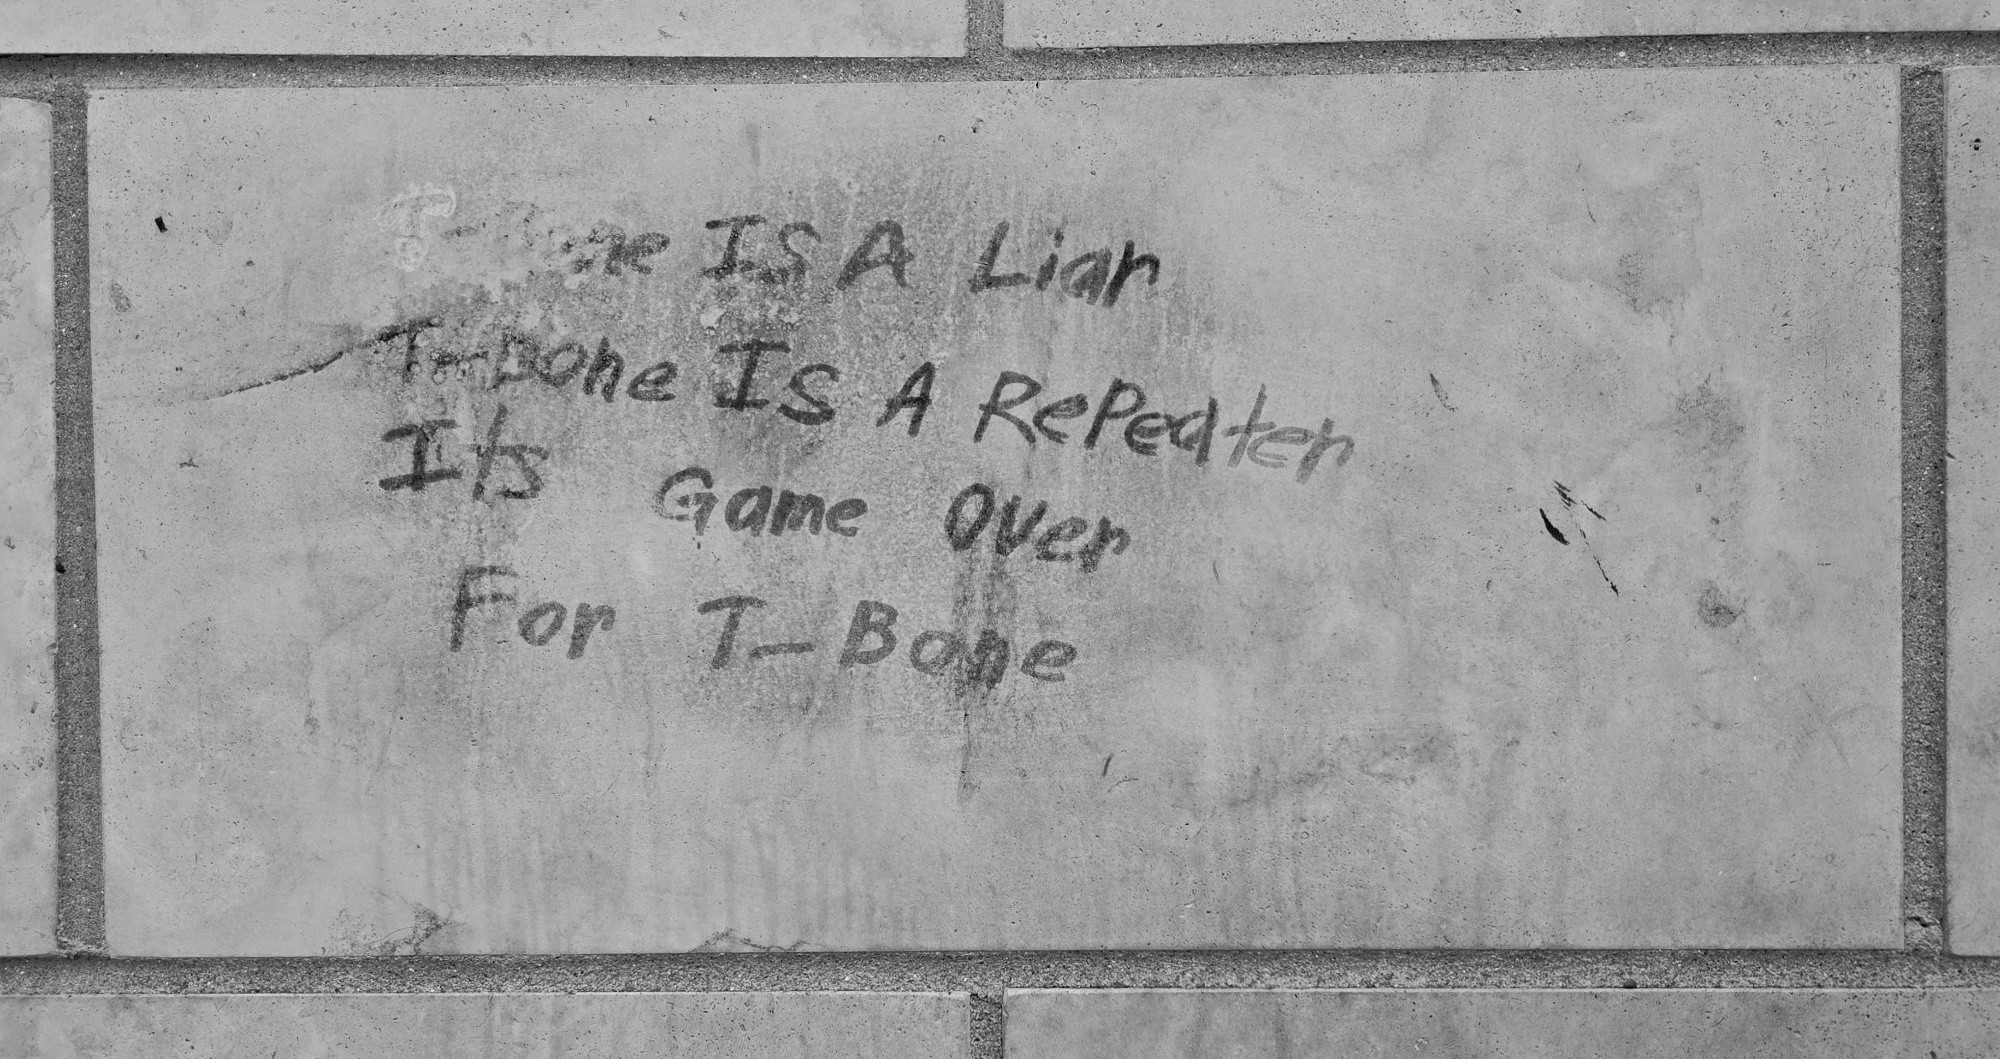 T-Bone IS A Liar
T-Bone IS A RePeater
Its Game Over
For T-Bone